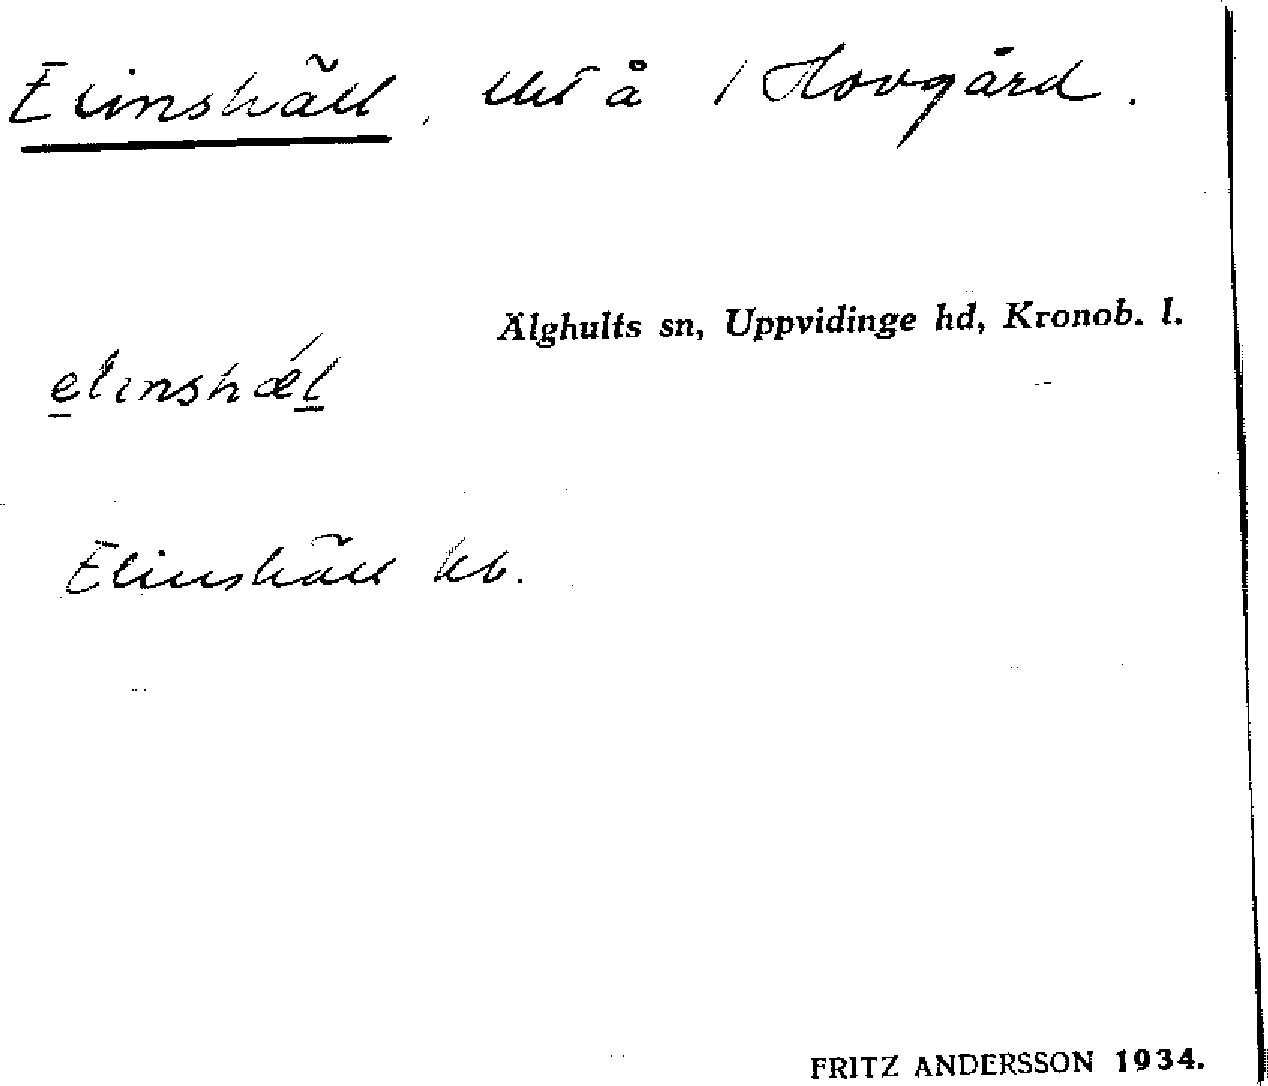 Elinshäll, lht å 1 Hovgård.
Älghults sn, Uppvidinge hd, Kronob. l.
elinshǽl
Elinshäll kb.
FRITZ ANDERSSON 1934.